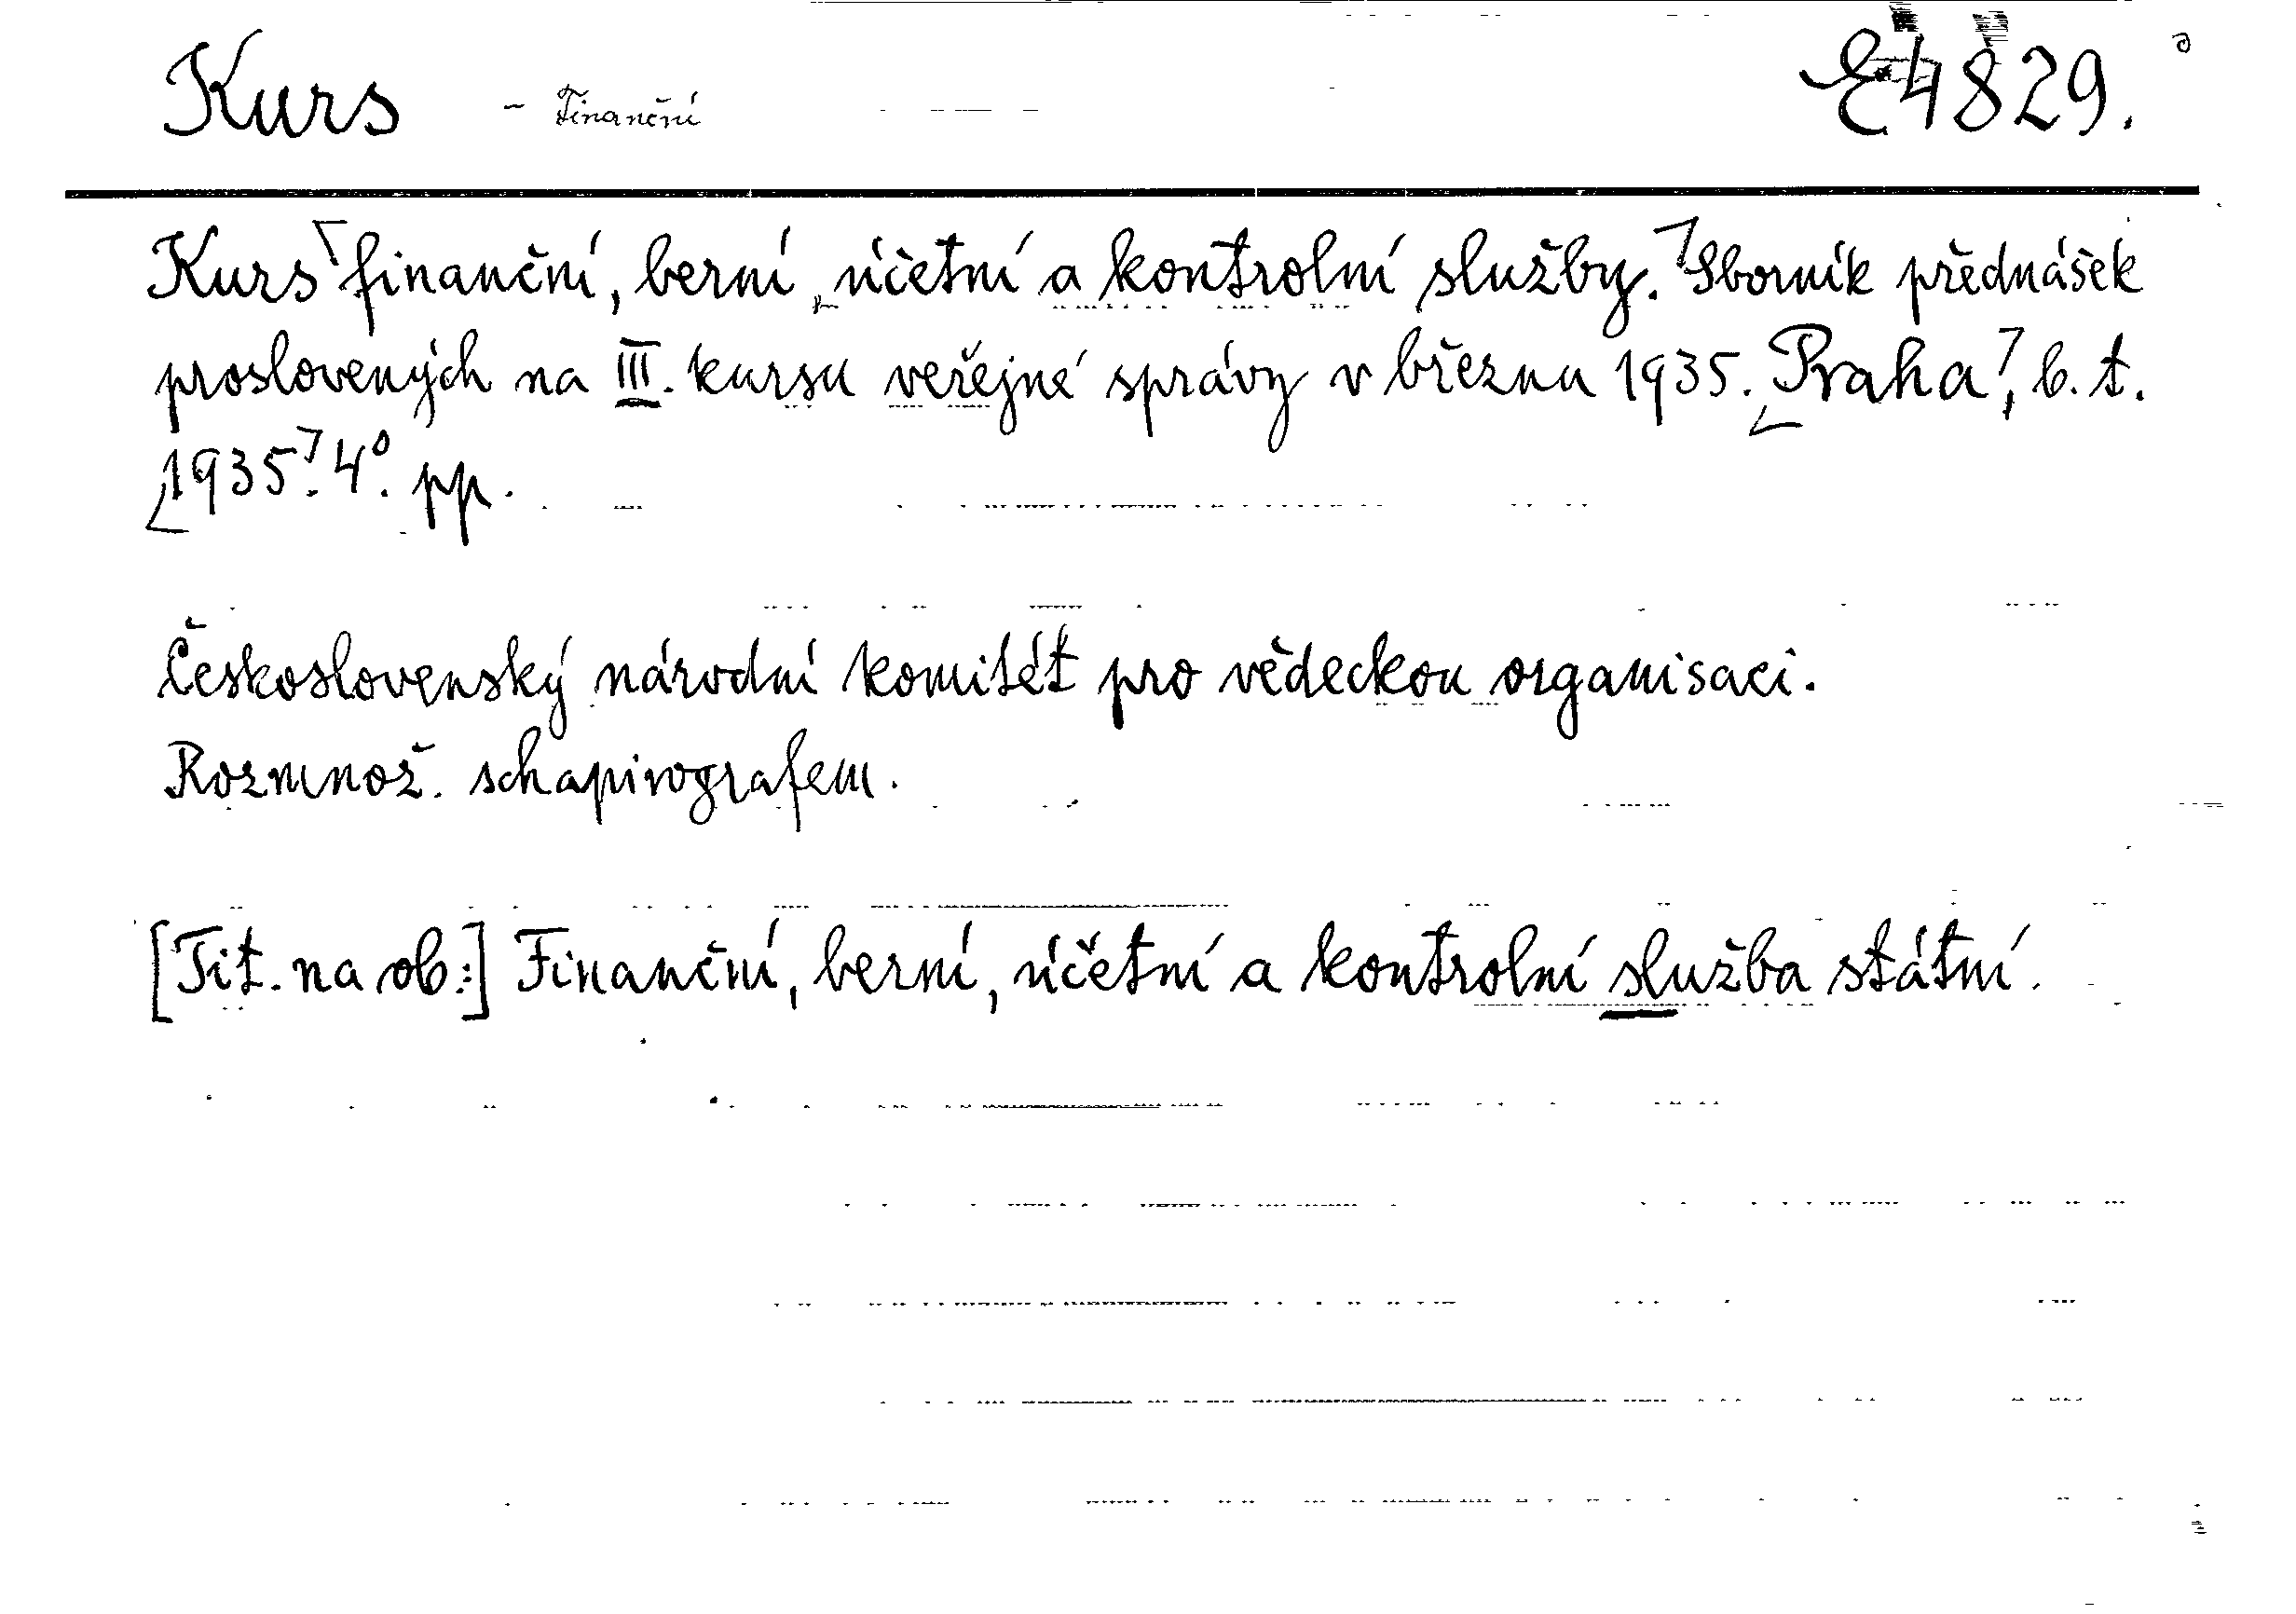 Kurs - Finanční E 4829.
Kurs finanční, berní, účetní a kontrolní služby. Sborník přednášek
proslovených na III. kursu veřejné správy v březnu 1935. Praha, b. t.
1935. 4°. pp.
Československý národní komitét pro vědeckou organisaci.
Rozmnož. schapirografem.
[Tit. na ob.:] Finanční, berní, účetní a kontrolní služba státní.